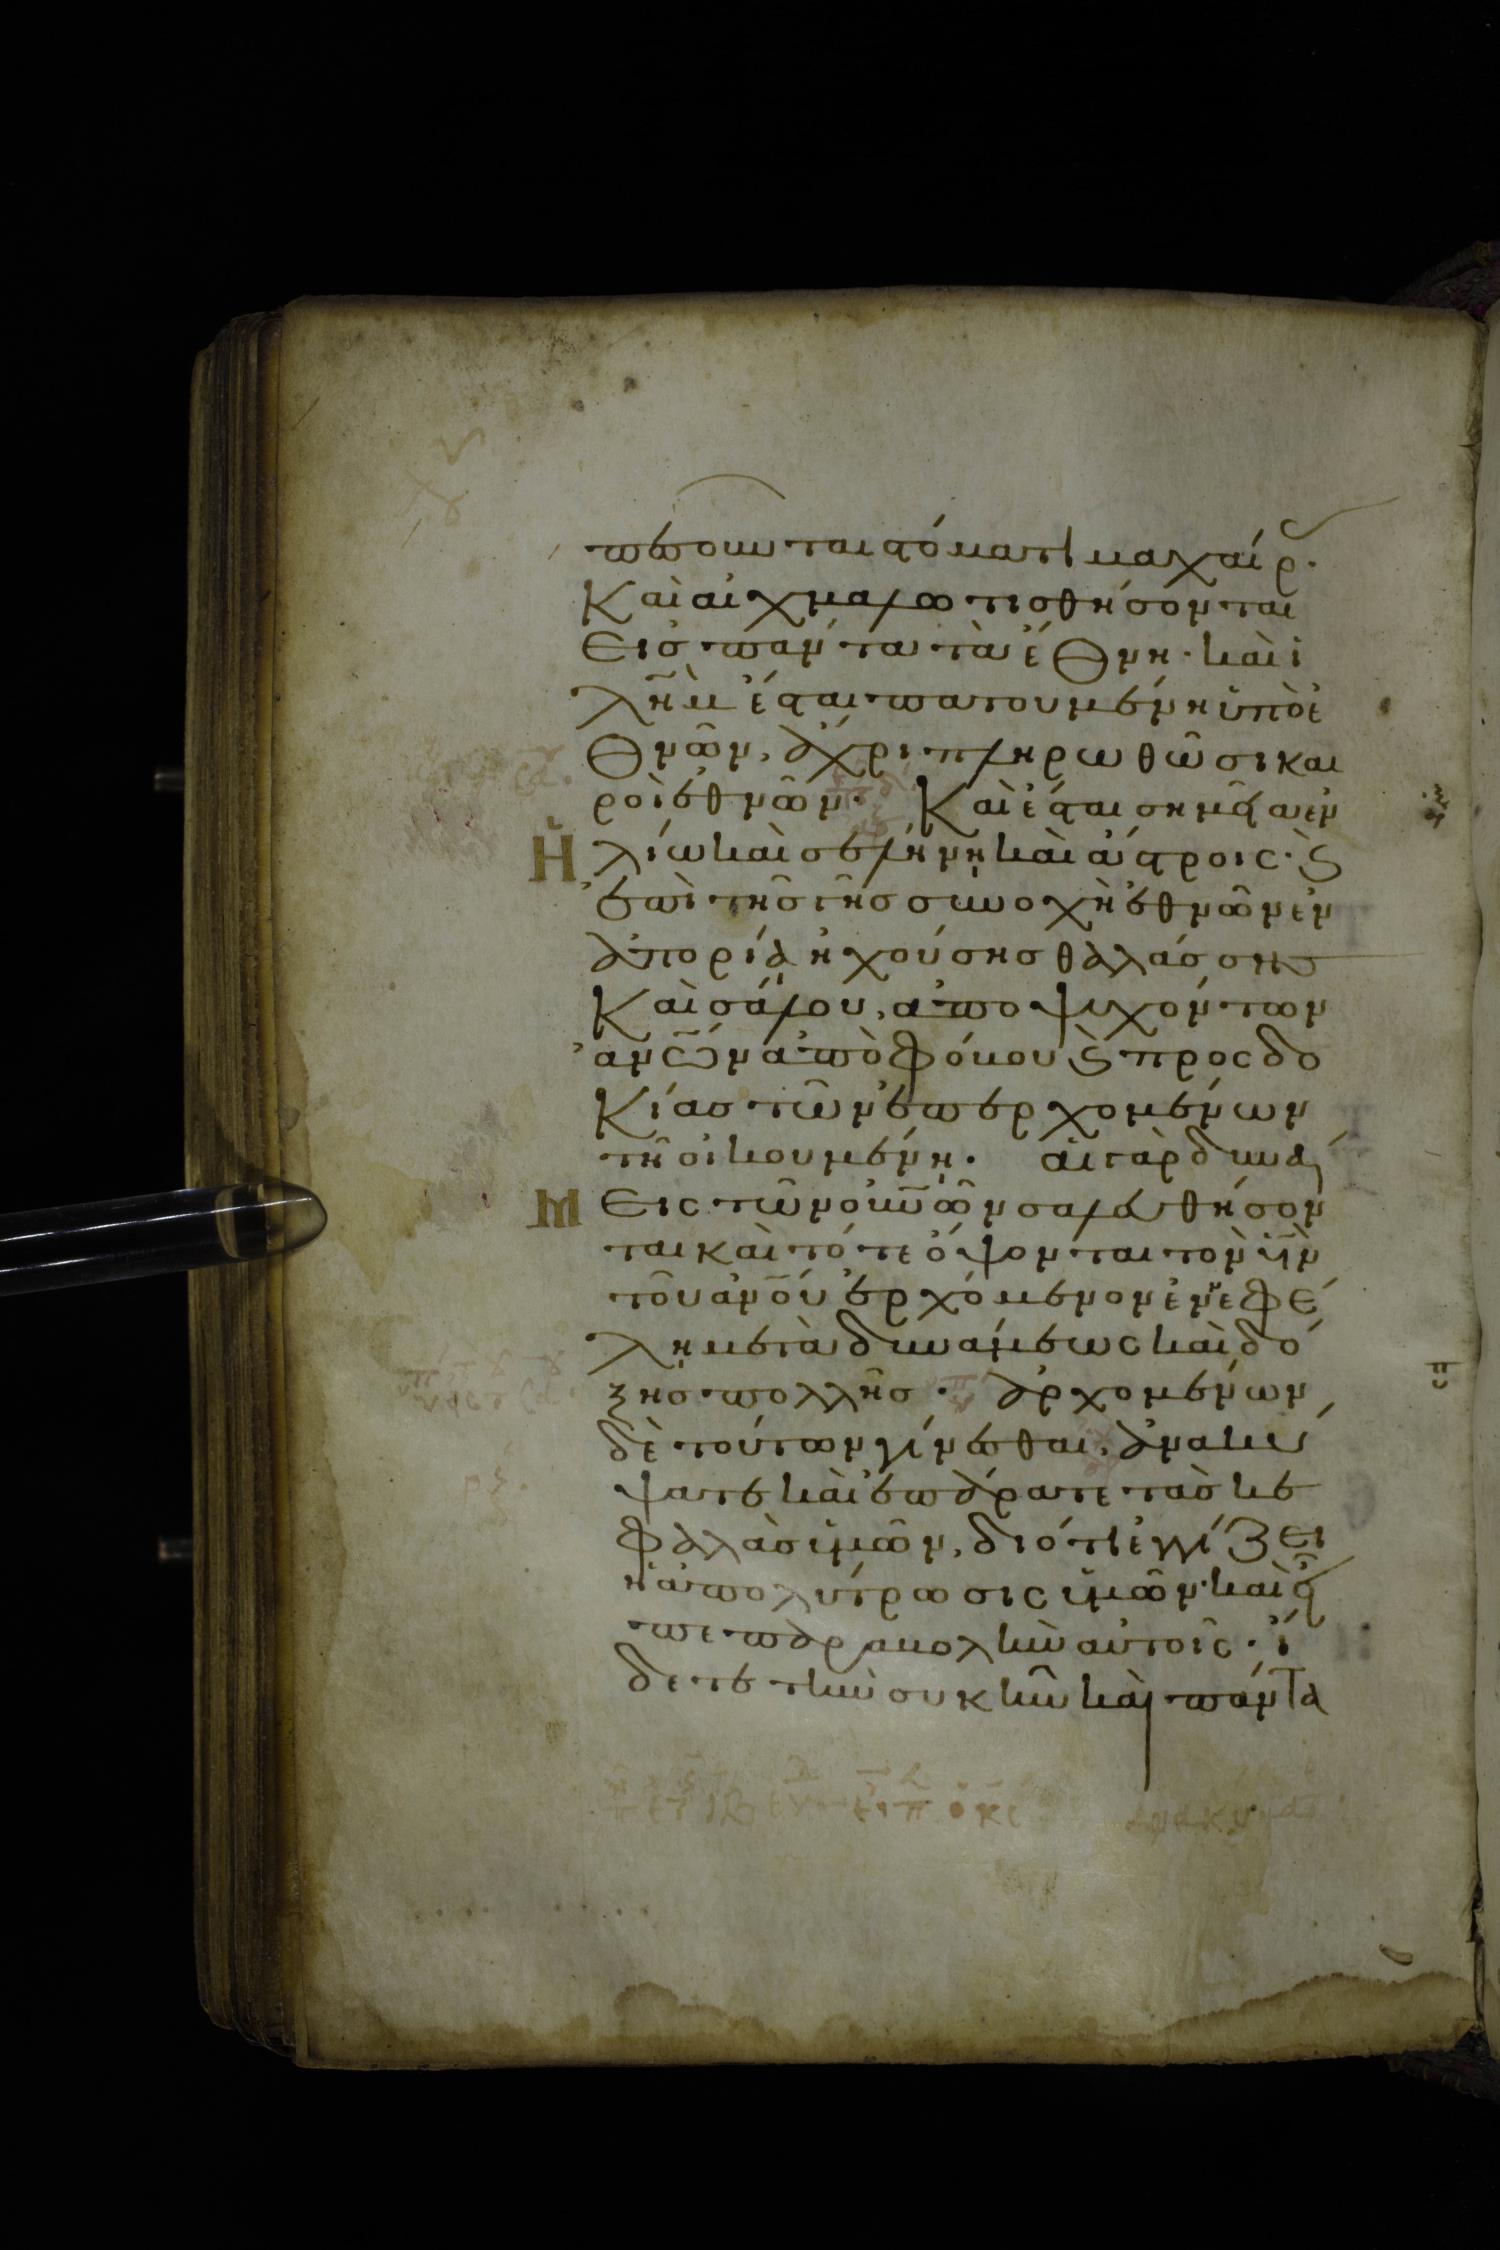 πεσουνται στόματι μαχαίρ.
Καὶ αἰχμαλωτισθήσονται
Εἰσ πάντα τὰ ἔθνη· καὶ ι
λῆμ ἔσται πατουμένη ὑπὸ ἐ
θνῶν, ἄχρι πληρωθῶσι και
ροὶ ἐθνῶν. Καὶ ἔσται σημεῖα ἐν
Ἡ λίω καὶ σελήνῃ καὶ ἄστροις· ϗ
ἐπὶ τῆσ γῆσ συνοχὴ ἐθνῶν ἐν
ἀπορίᾳ ἠχούσησ θαλάσσησ
Καὶ σάλου, ἀποψυχόντων
ἀνῶν ἀπὸ φόβου ϗ προσδο
Κίασ τῶν ἐπερχομένων
τῆ οἰκουμένῃ. αἱ γὰρ δυνά
Μ Εις τῶν οὐνῶν σαλευθήσον
ται καὶ τότε ὄψονται τὸν υἱὸν
τοῦ ἀνοῦ ἐρχόμενον ἐν νεφέ
λῃ μετὰ δυνάμεως καὶ δό
ξησ πολλῆσ. ἀρχομένων
δὲ τούτων γίνεσθαι, ἀνακύ
ψατε καὶ ἐπάρατε τὰσ κε
φαλὰσ ὑμῶν, διότι ἐγγίζει
ἡ ἀπολύτρωσις ὑμῶν· καὶ εἶ
πε παραβολὴν αὐτοῖς· ἴ
δετε τὴν συκῆν καὶ πάντα